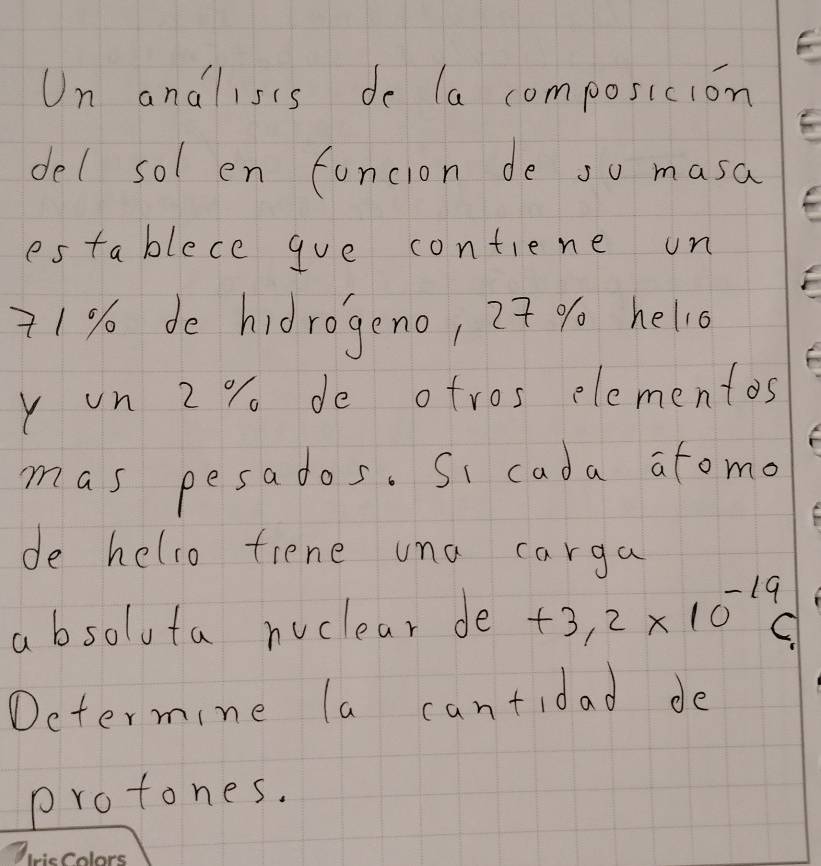 Un análisis de la composición
del sol en funcion de su masa
establece que contiene un
71% de hidrógeno, 27% helio
y un 2% de otros elementos
mas pesados. Si cada átomo
de helio tiene una carga
absoluta nuclear de +3,2 x 10⁻¹⁹ C.
Determine la cantidad de
protones.
Iris Colors